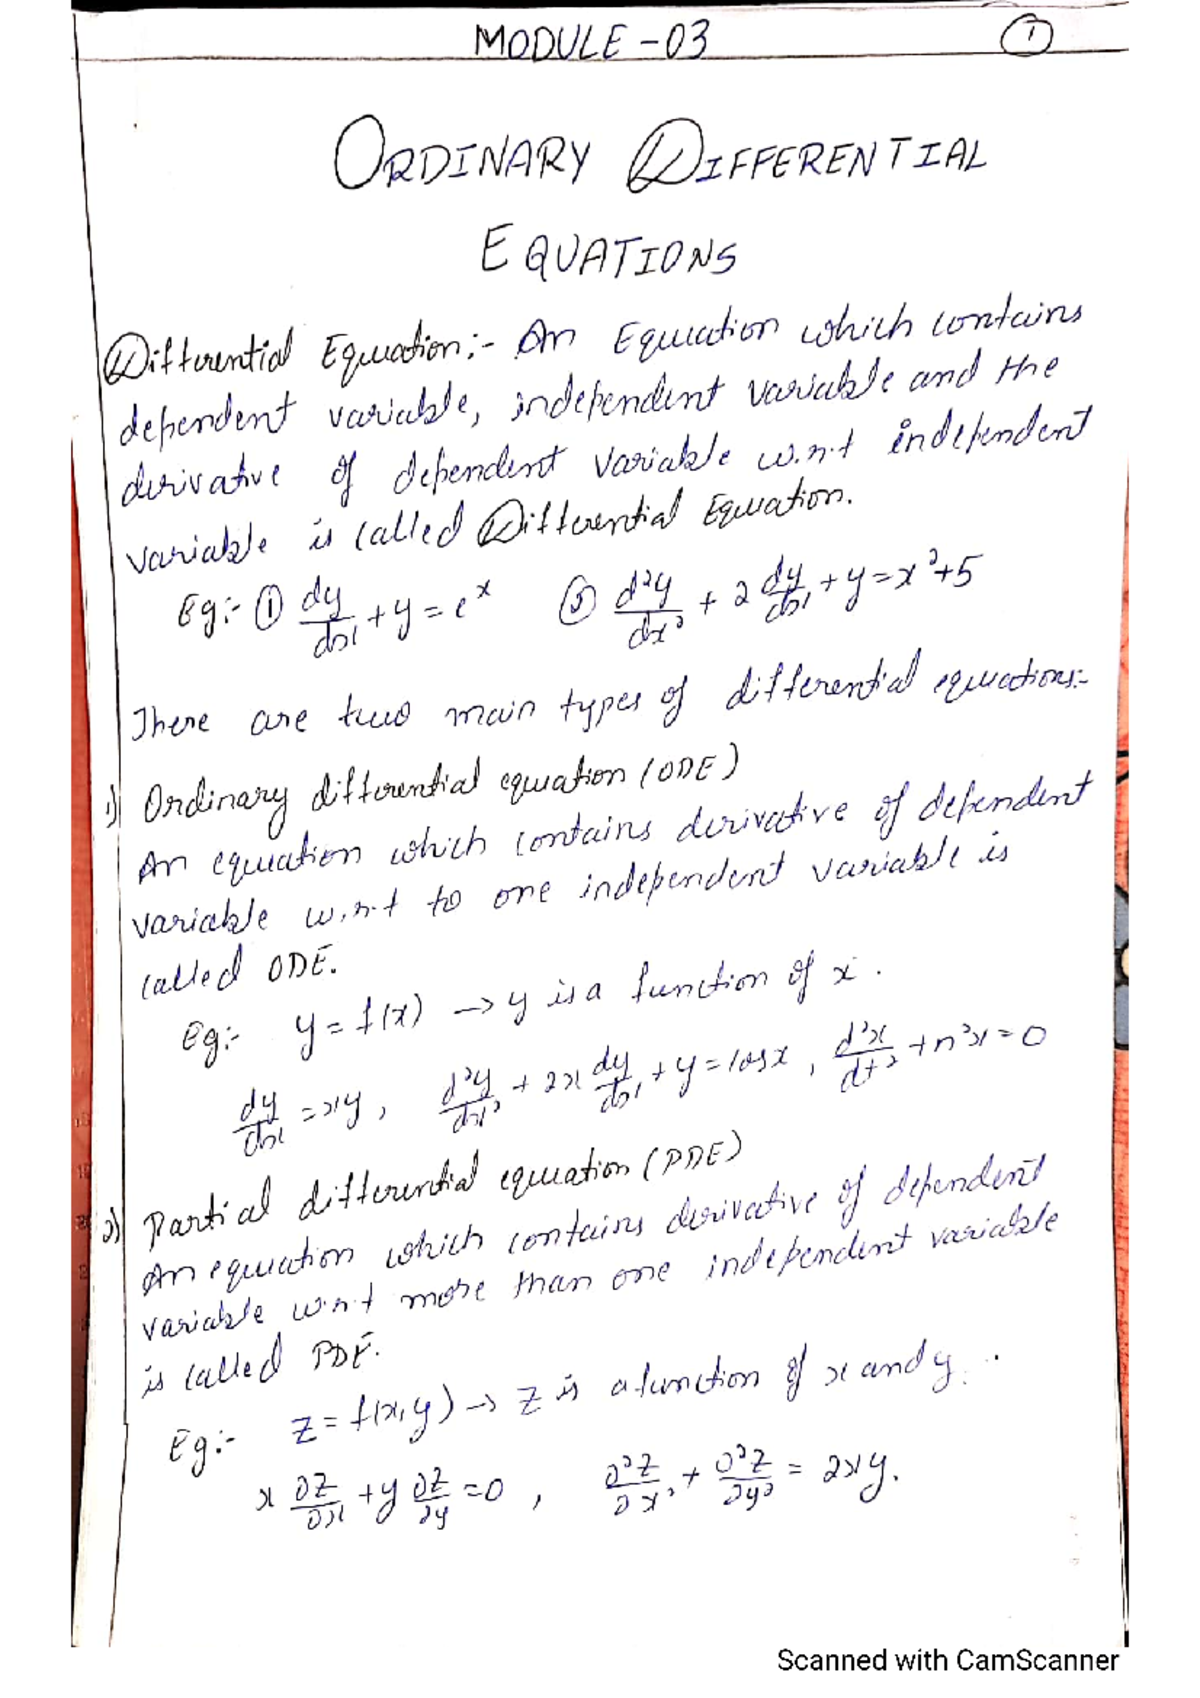 MODULE - 03
1
ORDINARY DIFFERENTIAL
EQUATIONS
Differential Equation:- An Equation which contains
dependent variable, independent variable and the
derivative of dependent variable w.r.t independent
variable is called Differential Equation.
Eg:- ① dy/dx + y = e^x ② d²y/dx² + 2 dy/dx + y = x²+5
There are two main types of differential equations:-
1) Ordinary differential equation (ODE)
An equation which contains derivative of dependent
variable w.r.t to one independent variable is
called ODE.
Eg:- y = f(x) → y is a function of x.
dy/dx = xy, d²y/dx² + 2x dy/dx + y = cosx, d²x/dt² + n²x = 0
2) Partial differential equation (PDE)
An equation which contains derivative of dependent
variable w.r.t more than one independent variable
is called PDE.
Eg:- z = f(x,y) → z is a function of x and y.
x ∂z/∂x + y ∂z/∂y = 0, ∂²z/∂x² + ∂²z/∂y² = 2xy.
Scanned with CamScanner